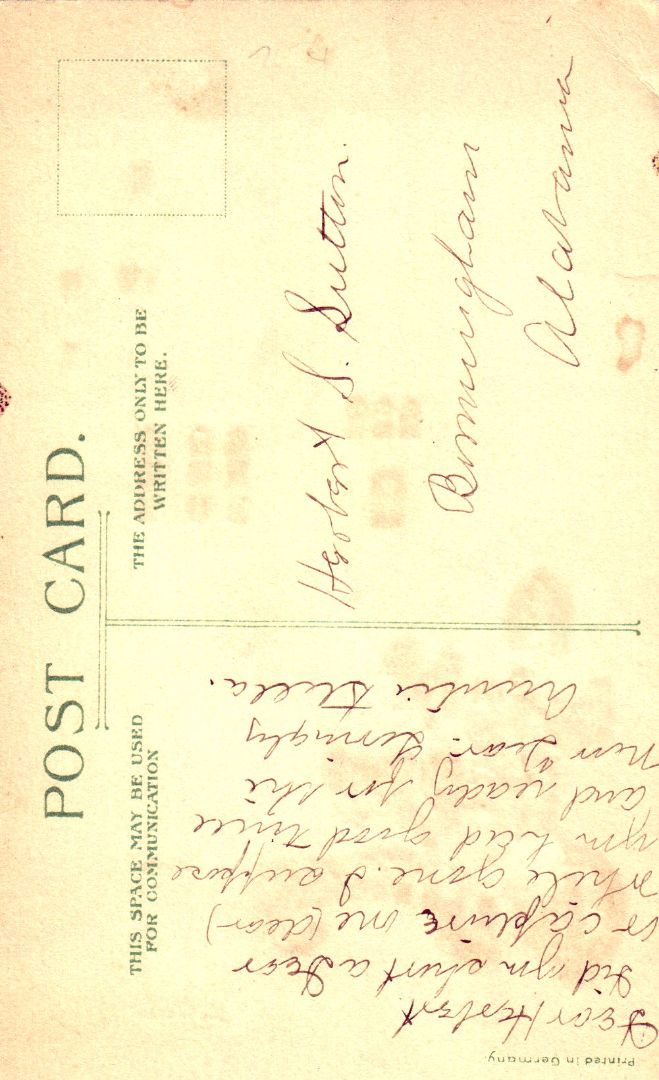 POST CARD.
THIS SPACE MAY BE USED
FOR COMMUNICATION
THE ADDRESS ONLY TO BE
WRITTEN HERE.
Dear Herbert
Did you shoot a deer
or capture one (dear)
while gone. I suppose
you had good time
and ready for the
New Year. Lovingly
Auntie Stella.
Herbert S. Sutton.
Birmingham
Alabama
Printed in Germany